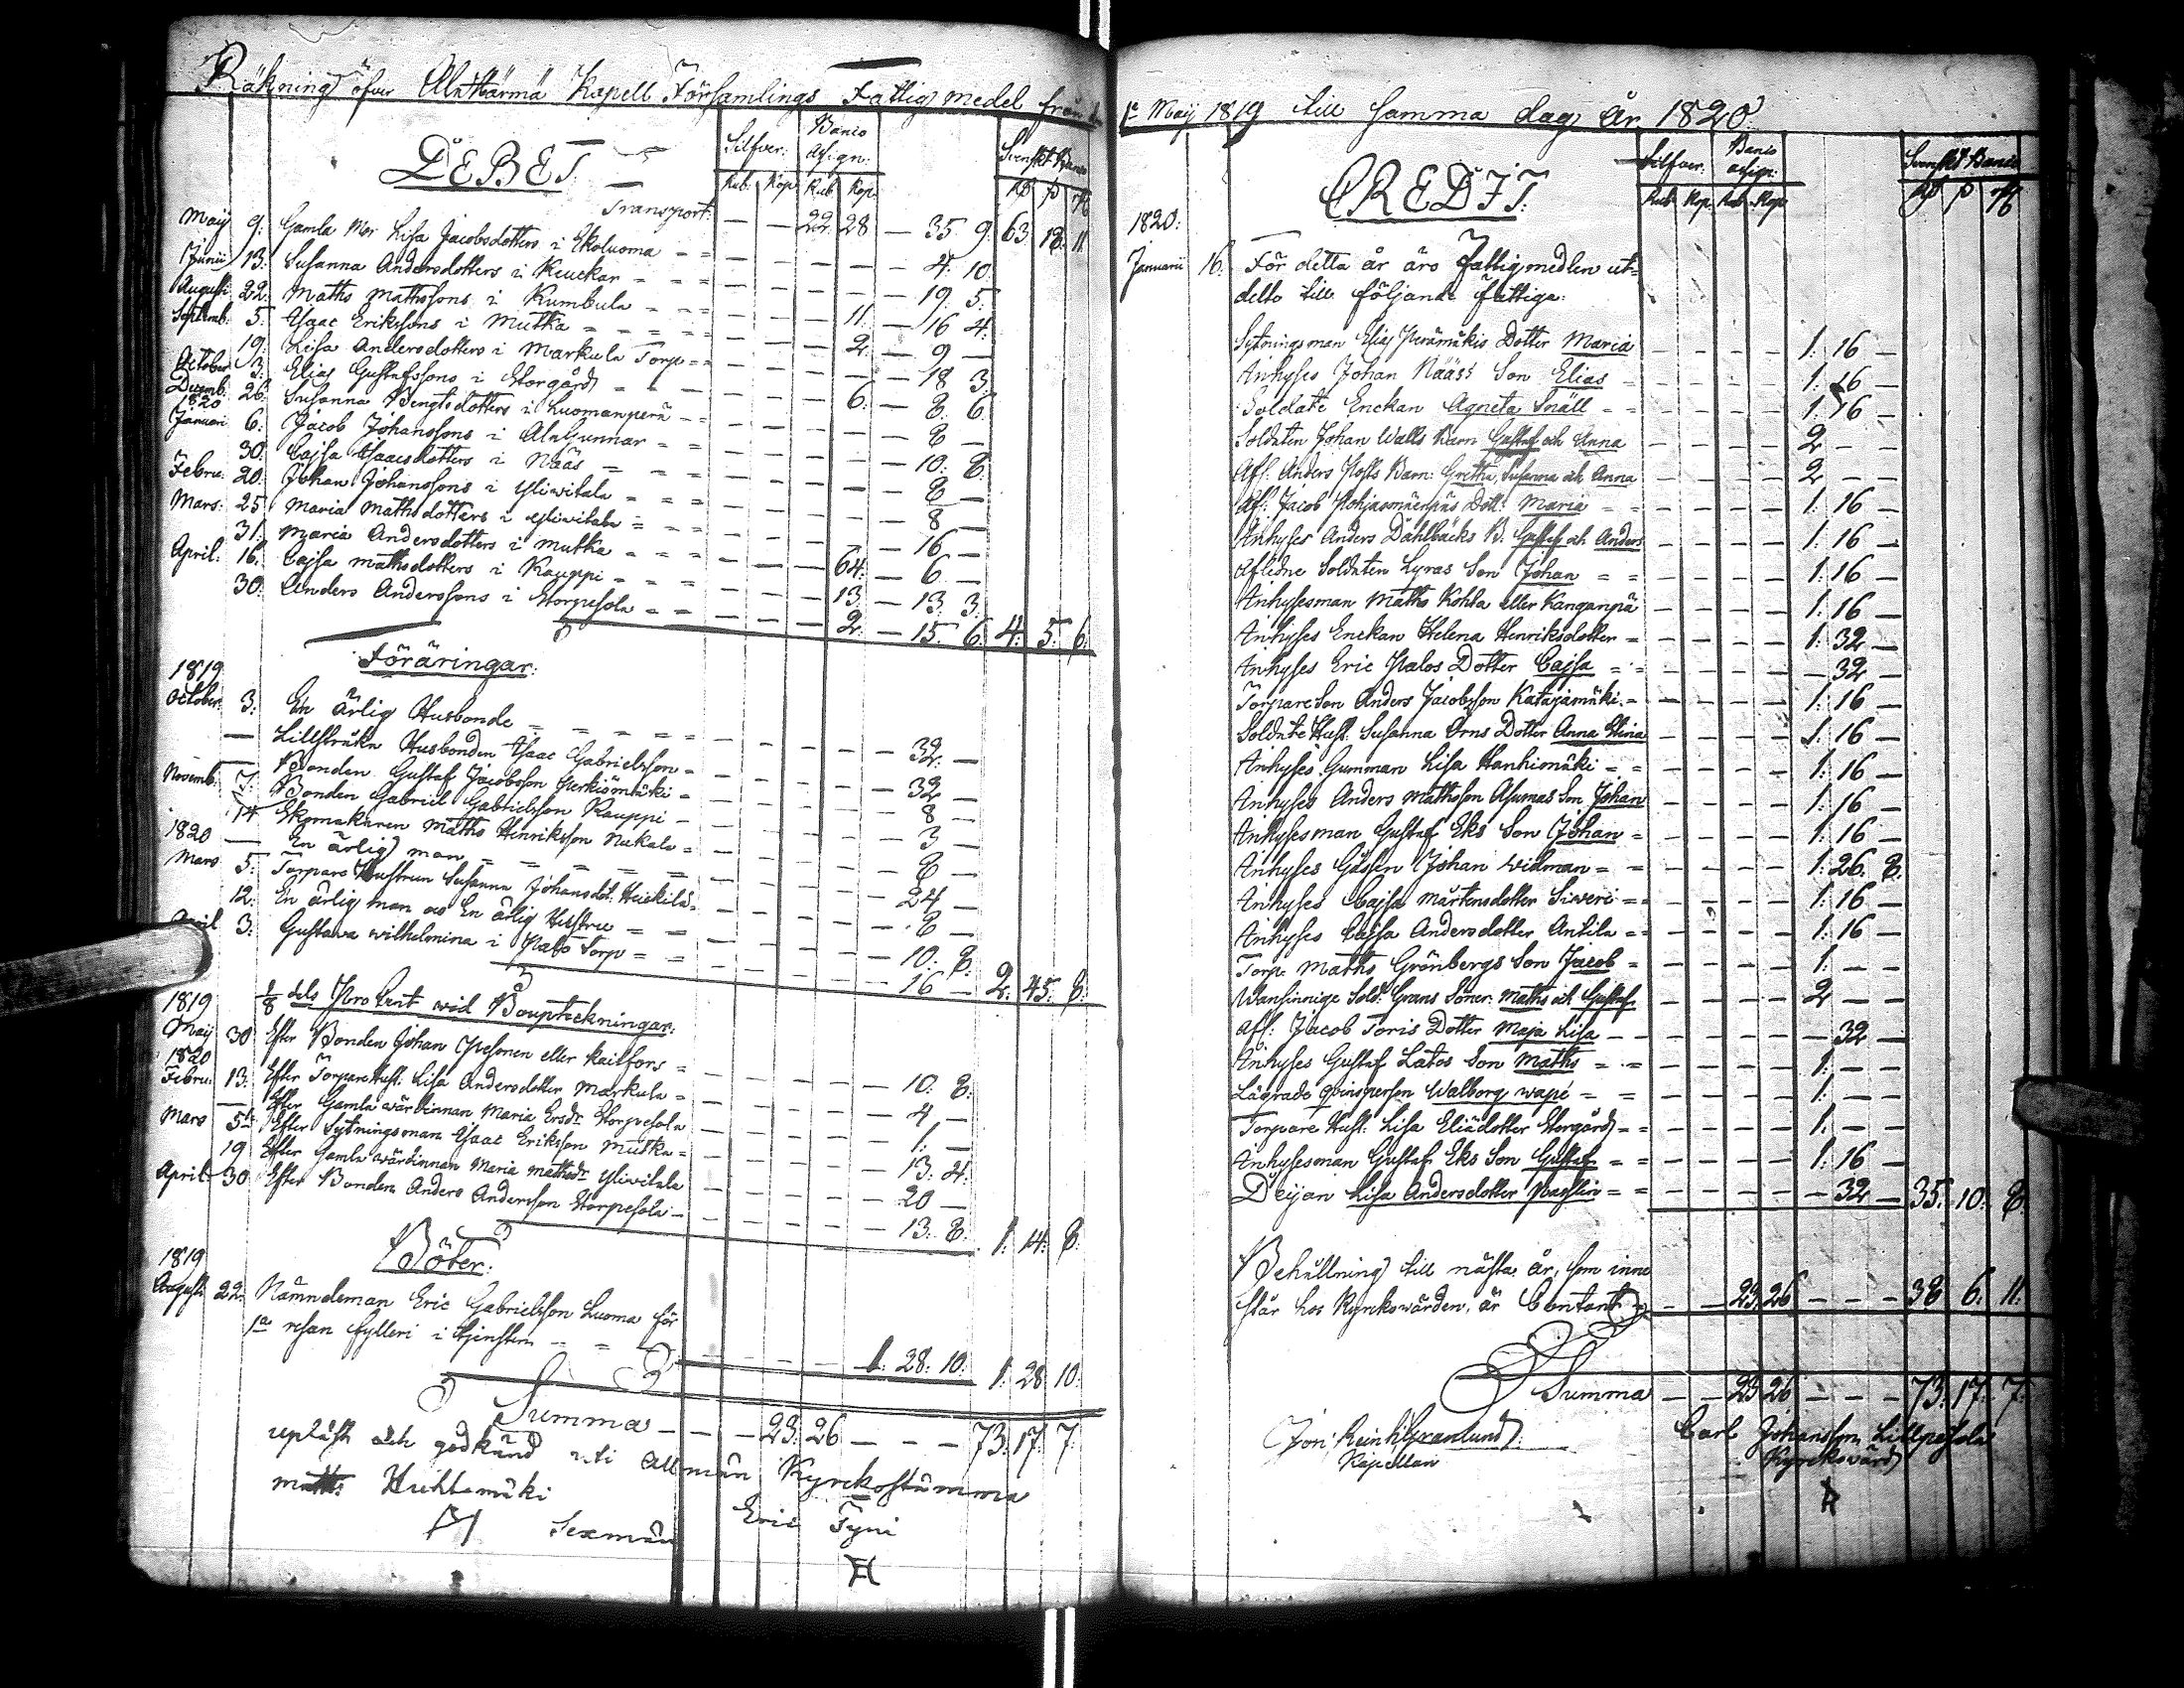 Räkning öfver Alahärmä Kapell Församlings Fattig medel från
DEBET.
Silfver: Banco assign: Svenskt Banco
Rub. Kop. Rub. Kop. Rd ß
Transport: — — 22. 28 — — — 63. 18. 11.
Maij 9. Gamla Mor Lisa Jacobsdotters i Ekoluoma — — 35. 9.
Junii 13. Susanna Andersdotters i Keuckar — — 4. 10.
Augusti 22. Matts Mattssons i Kumbula — — 19. 5.
Septemb. 5. Isaac Erikssons i Mutka — — 11. — 16. 4.
19. Lisa Andersdotters i Markula Torp — — 2. — 9 —
October 3. Elias Gustafssons i Storgård — — 18. 3.
Decemb. 26. Susanna Bengtsdotters i Luomanperä — — 6. — 8. 6.
1820
Januari 6. Jacob Johanssons i AlaGunnar — — 8 —
30. Cajsa Isaacsdotters i Nääs — — 10. 8.
Febru. 20. Johan Johanssons i Yliwitala — — 8 —
Mars. 25 Maria Mathsdotters i Yliwitala — — 8 —
31. Maria Andersdotters i Mutka — — 16 —
April. 16. Cajsa Mathsdotters i Kauppi — — 64. — 6 —
30. Anders Anderssons i Storpesola — — 13. — 13. 3.
2. — 15. 6. 4. 5. 6.
Föräringar:
1819
October. 3. En ärlig Husbonde — — 32. —
— Lillstråka Husbonden Isaac Gabrielsson — — 32 —
— Bonden Gustaf Jacobsson Perkiömäki — — 8 —
Novemb. 7. Bonden Gabriel Gabrielsson Kauppi — — 3 —
14 Skomakaren Matts Henriksson Nukala — — 8 —
1820 — En ärlig man — — 24 —
Mars 5. Torpare Hustrun Susanna Johansdot. Heikilä — — 8 —
12. En ärlig man och En ärlig Hustru — — 10. 8.
April 3. Gustava Wilhelmina i Palo Torp — — 16 — 2. 45. 8.
1/8 dels Procent wid Bouptekningar:
1819
Maij 30 Efter Bonden Johan Pesonen eller Kailfors — — 10. 8.
1820
Febru. 13. Efter Torpare Hust. Lisa Andersdotter Markula — — 4 —
— Efter Gamla wärdinnan Maria Ersdr Storpesola — — 1. —
Mars 5te Efter Sytningsman Isaac Eriksson Mutka — — 13. 4.
19 Efter Gamla wärdinnan Maria Mathsdr Yliwitala — — 20 —
April 30 Efter Bonden Anders Andersson Storpesola — — 13. 8. 1. 14. 8.
Böter:
1819
Augusti 22. Nämndeman Eric Gabrielsson Luoma för
1a resan fylleri i tjensten — — 1. 28. 10. 1. 28. 10.
Summa — — 23. 26 — — — 73. 17. 7.
upläst och godkänd uti Allmän Kyrckostämma
Matts Huhtamäki
Eric Tyni
Sexmän
1e Maij 1819 till samma dag år 1820.
CREDIT.
Silfver. Banco assign: Svenskt Banco
Rub. Kop. Rub. Kop. Rd ß
1820:
Januarii 16. För detta år äro Fattigmedlen ut-
delte till följande fattige:
Sytningsman Elias Perämäkis Dotter Maria — — 1. 16 —
Inhyses Johan Nääs's Son Elias — — 1. 16 —
Soldate Enckan Agneta Snäll — — 1. 16 —
Soldaten Johan Walls Barn Gustaf och Anna — — 2 — —
Afl. Anders Posts Barn: Gretha, Susanna och Anna — — 2 — —
Afl. Jacob Pohjasmäenpäs Dott. Maria — — 1. 16 —
Inhyses Anders Dahlbäcks B. Gustaf och Anders — — 1. 16 —
Aflidne Soldaten Lyras Son Johan — — 1. 16 —
Inhysesman Matts Kohla eller Kanganpä — — 1. 16 —
Inhyses Enckan Helena Henriksdotter — — 1. 32 —
Inhyses Eric Palos Dotter Cajsa — — 32 —
Torpare Son Anders Jacobsson Katajamäki — — 1. 16 —
Soldate Hust. Susanna Örns Dotter Anna Stina — — 1. 16 —
Inhyses Gumman Lisa Hanhimäki — — 1. 16 —
Inhyses Anders Mathsson Asumas Son Johan — — 1. 16 —
Inhysesman Gustaf Eks Son Johan — — 1. 16 —
Inhyses Gåssen Johan Widman — — 1. 26. 8.
Inhyses Cajsa Mårtensdotter Siweri — — 1. 16 —
Inhyses Cajsa Andersdotter Antila — — 1. 16 —
Torp. Matts Grönbergs Son Jacob — — 1. — —
Wansinnige Sold. Grans Söner. Maths och Gustaf — — 2 — —
Afl. Jacob Toris Dotter Maja Lisa — — 32 —
Inhyses Gustaf Latos Son Maths — — 1. — —
Lägrade Qvinsperson Walborg Wapé — — 1. — —
Torpare Hust. Lisa Eliädotter Storgård — — 1. — —
Inhysesman Gustaf Eks Son Gustaf — — 1. 16 —
Deijan Lisa Andersdotter Passlin — — 32 — 35. 10. 8.
Behållning till nästa år, som inne
står hos Kyrkowärden, är Contant — — 23. 26 — — — 38. 6. 11.
Summa — — 23 26 — — — 73. 17. 7.
Joh. Reinh. Granlund.
Kapellan
Carl Johansson Lillpesola
Kyrckovärd